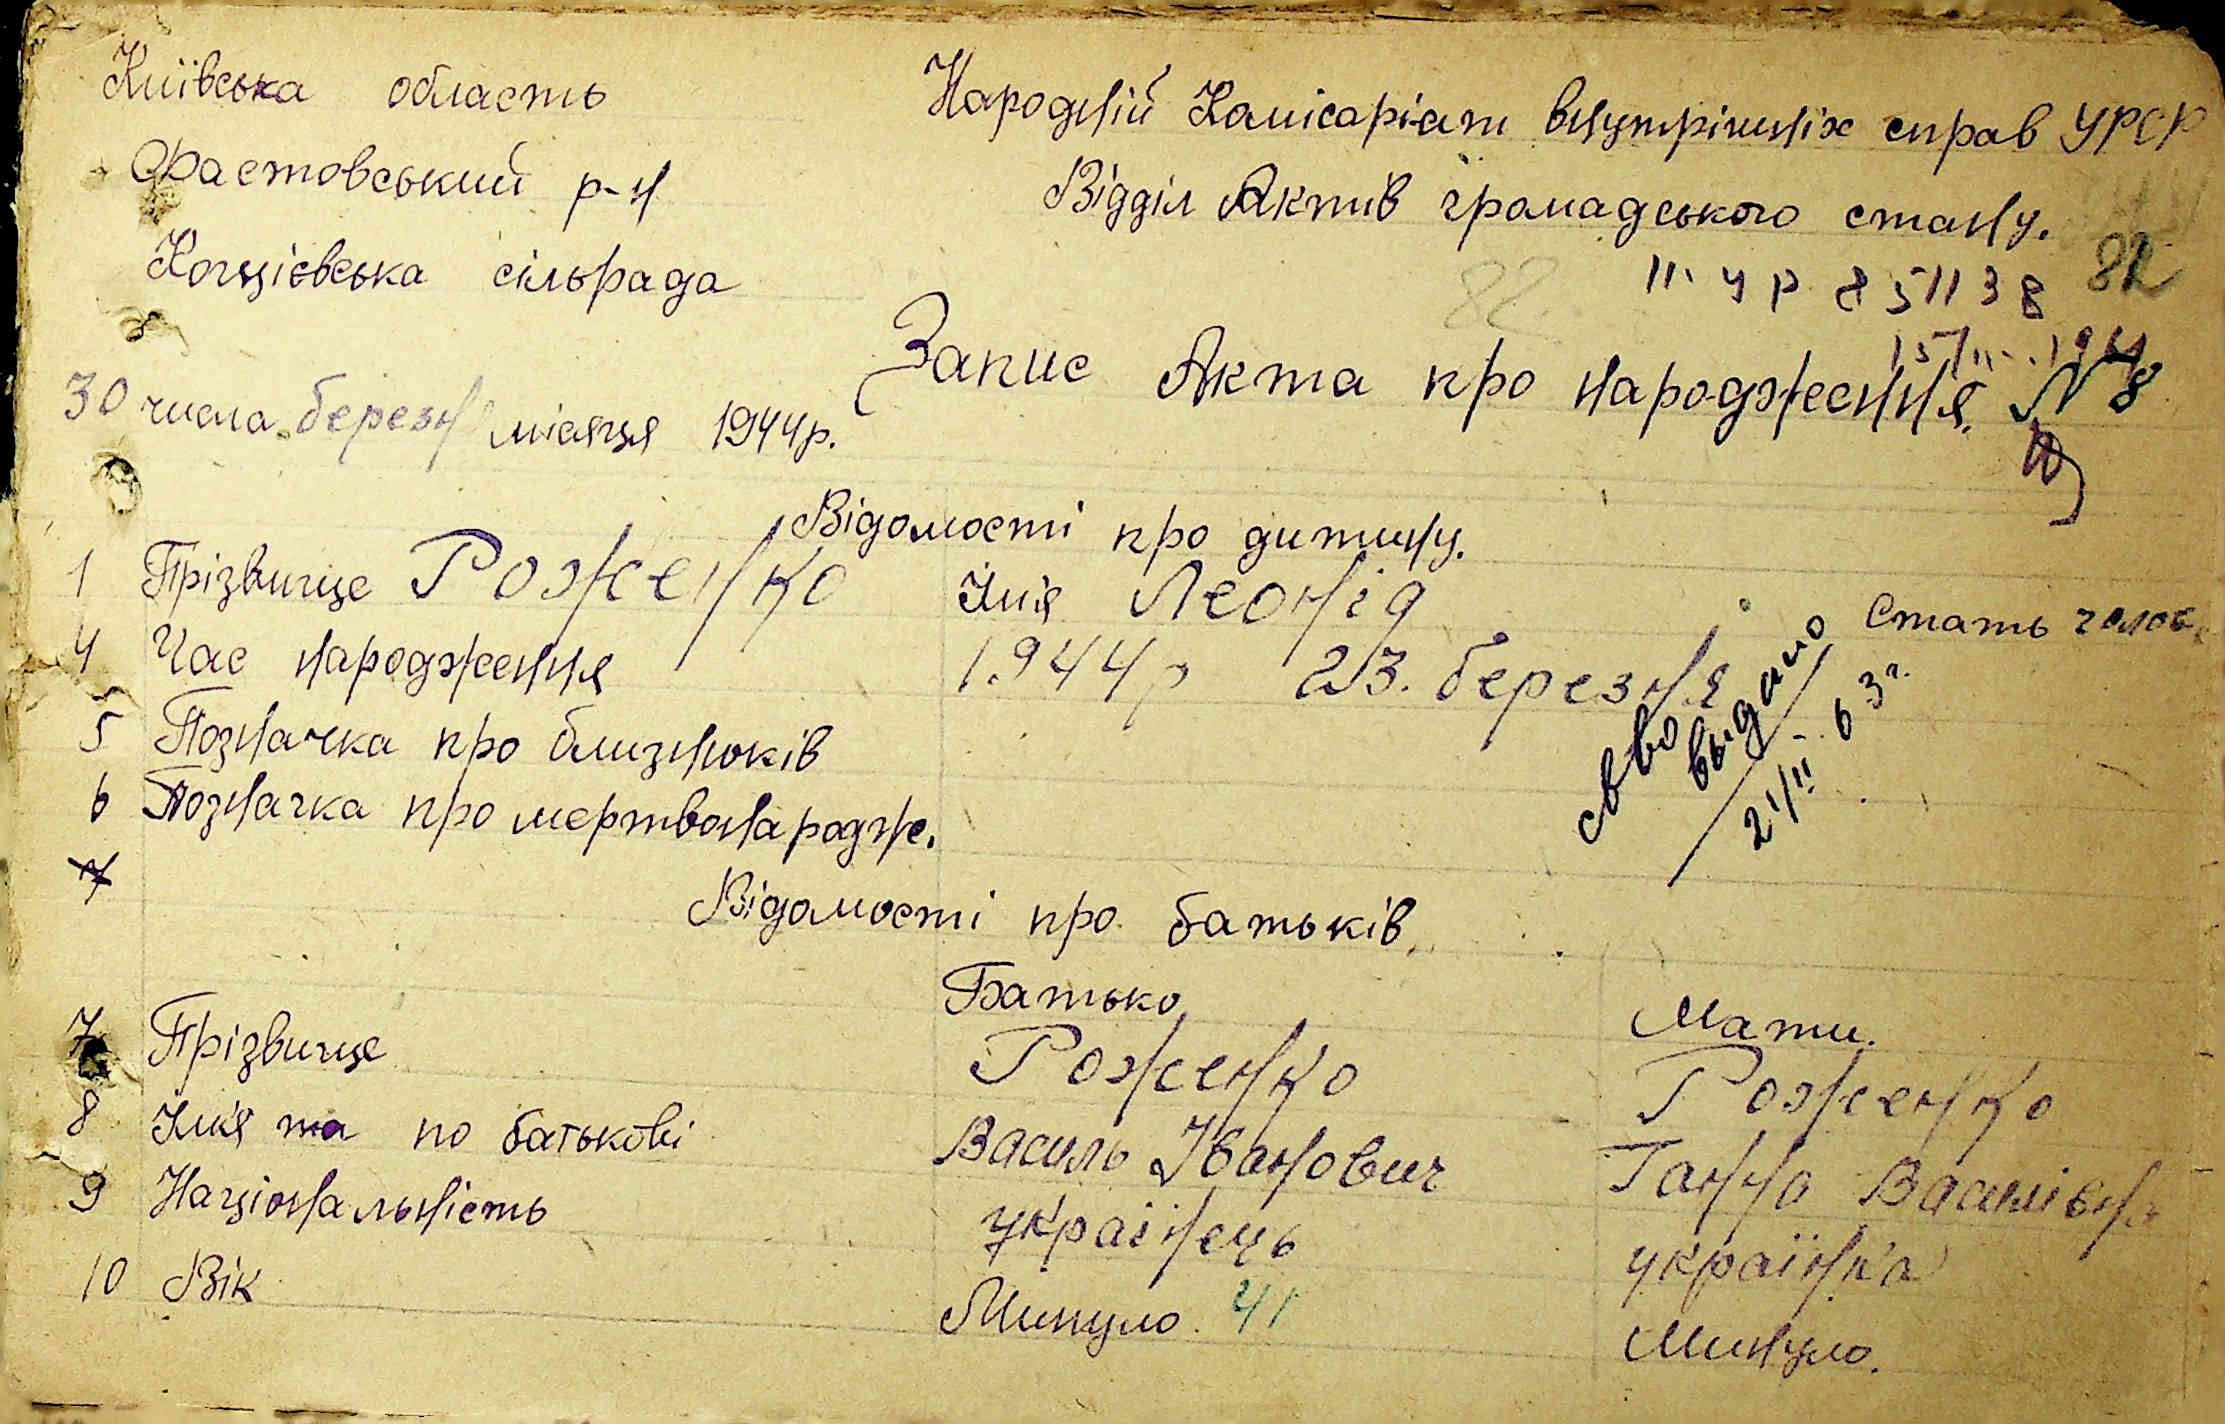 Київська область
Фастовський р-н
Кощіївська сільрада
Народній Комісаріат внутрішніх справ УРСР
Відділ Актів громадського стану.
82
82
II-УР 851138
Запис Акта про народження. N 8
30 числа березн місяця 1944р.
Відомості про дитину.
1 Прізвище Роженко Імя Леонід Стать чолов.
4 Час народження 1.944р 23. березня
5 Позначка про близнюків
6 Позначка про мертвонародже.
св во
выдано
21/II-63г.
Відомості про батьків.
Батько Мати.
7 Прізвище Роженко Роженко
8 Ім'я та по батькові Василь Іванович Ганна Василівна
9 Національність українець українка
10 Вік Минуло 41 Минуло.